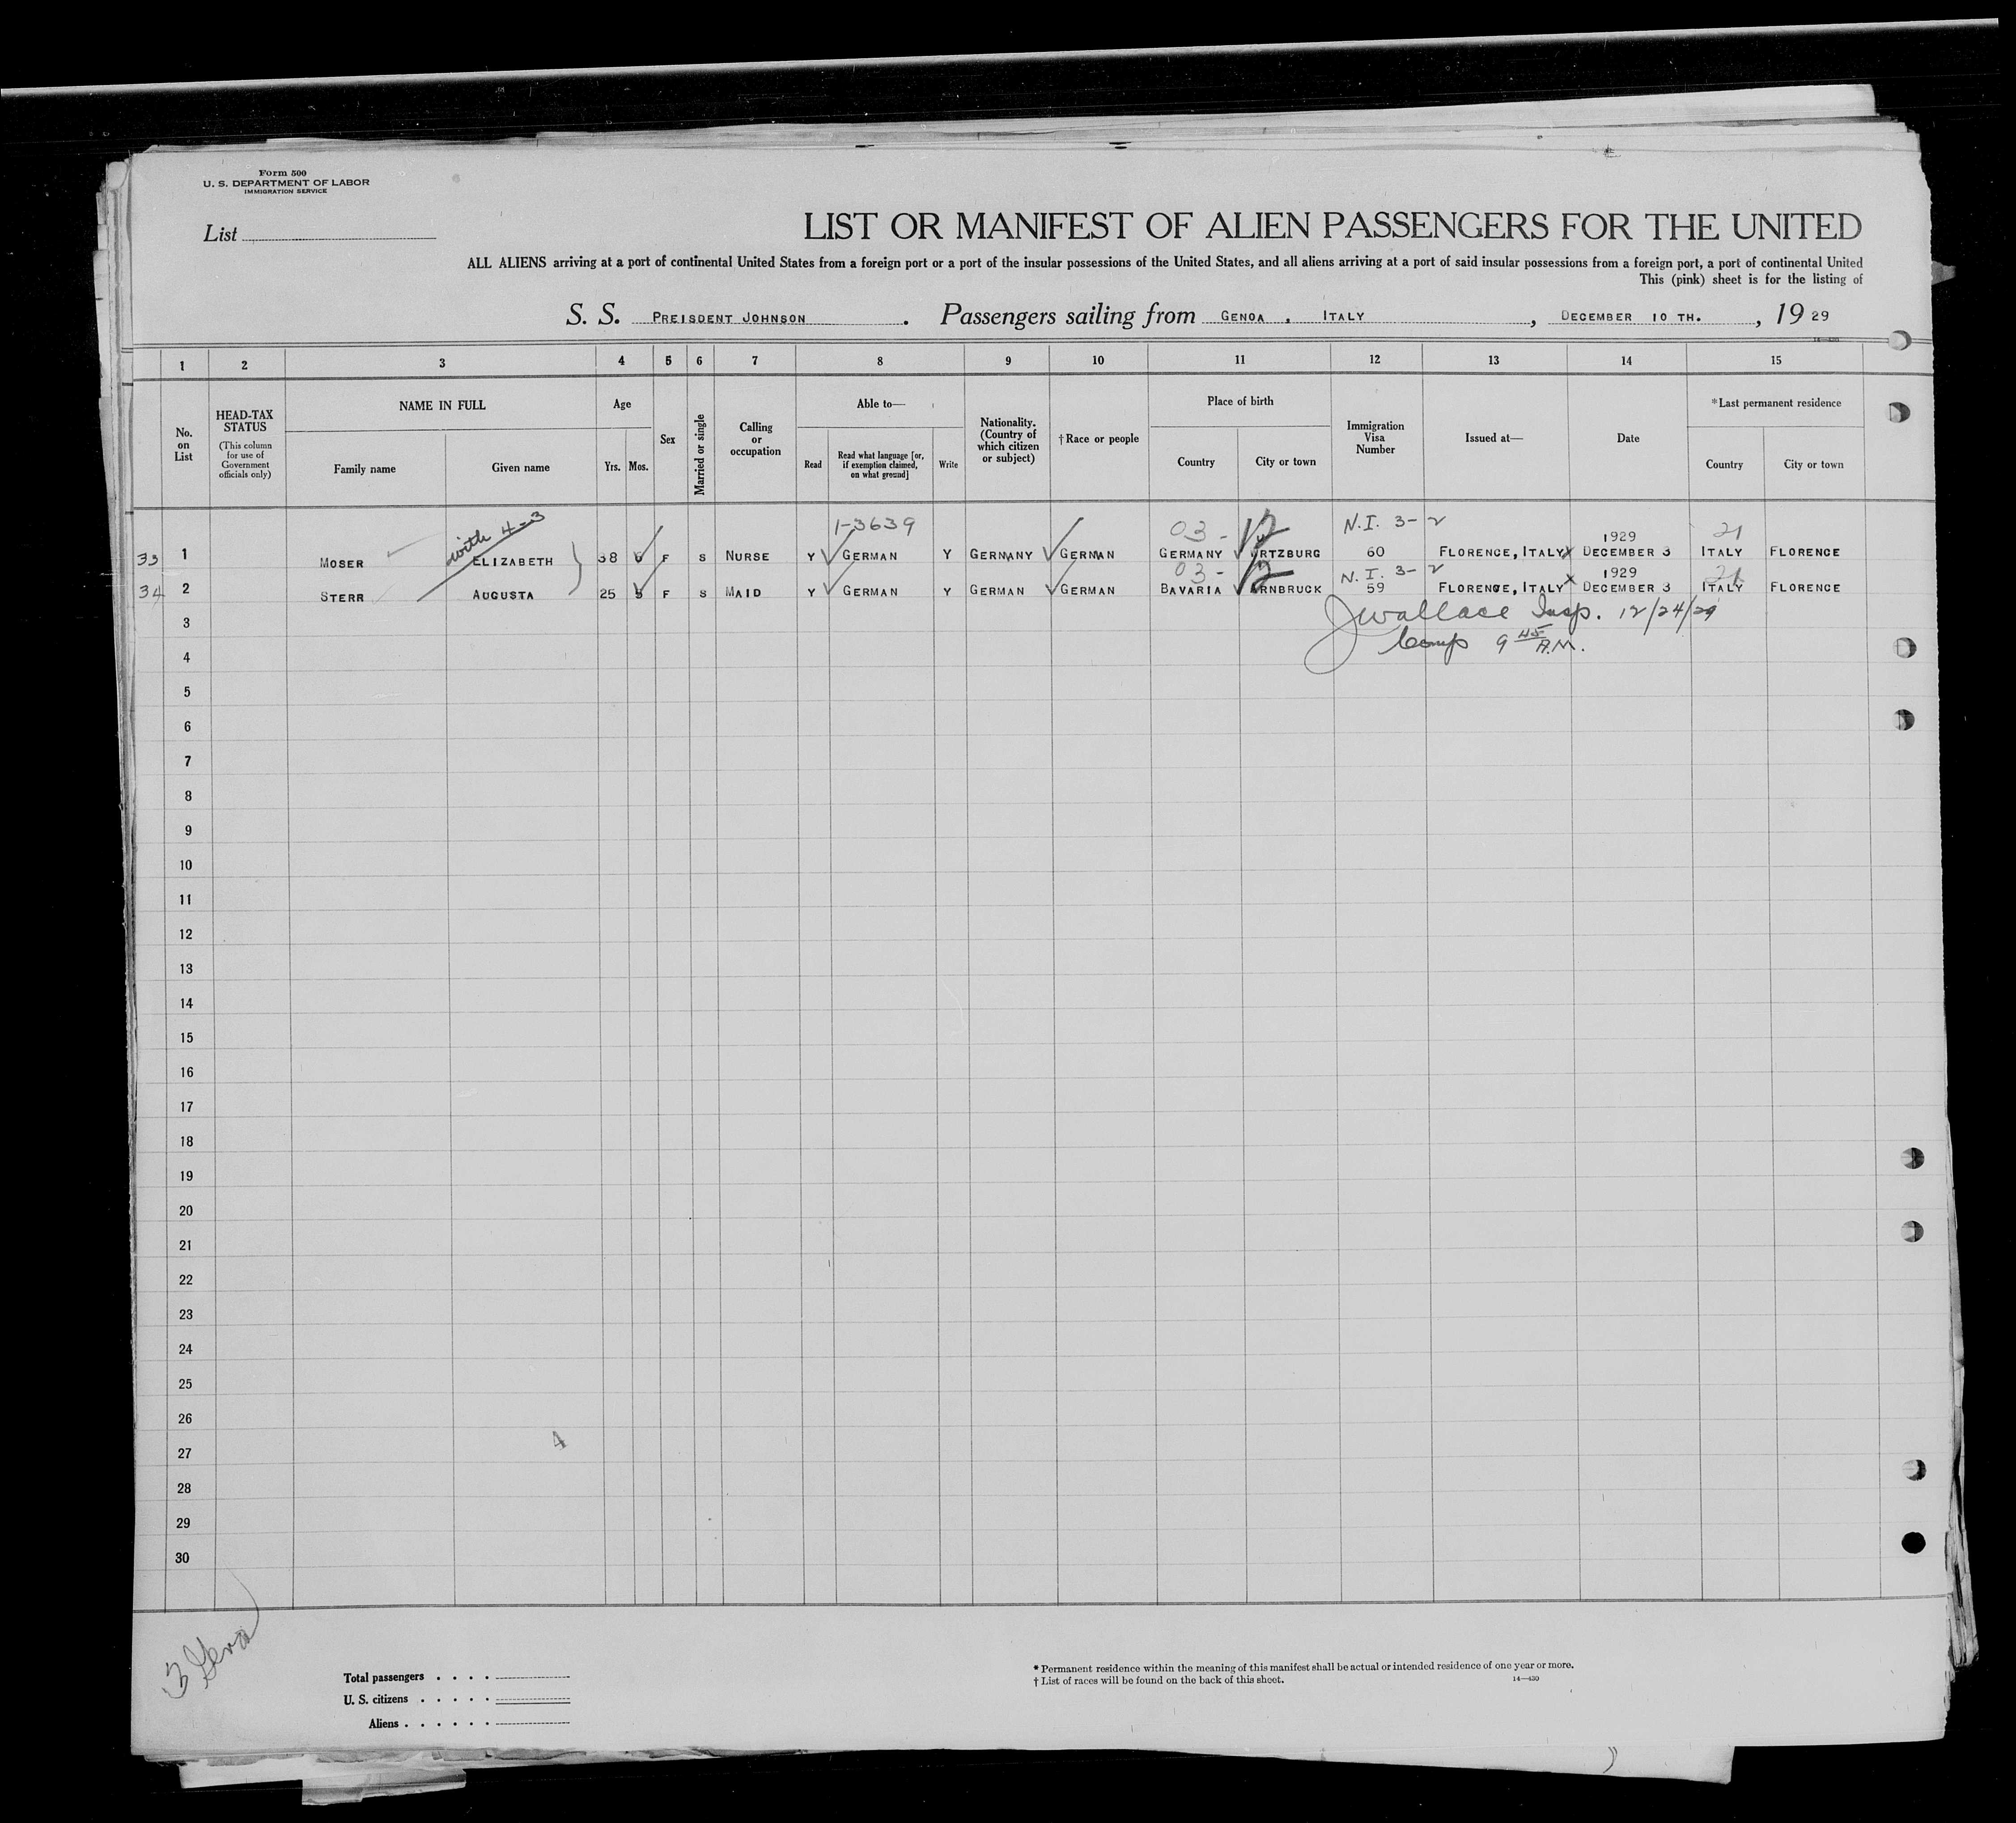 Form 500
U. S. DEPARTMENT OF LABOR
IMMIGRATION SERVICE
List
LIST OR MANIFEST OF ALIEN PASSENGERS FOR THE UNITED
ALL ALIENS arriving at a port of continental United States from a foreign port or a port of the insular possessions of the United States, and all aliens arriving at a port of said insular possessions from a foreign port, a port of continental United
This (pink) sheet is for the listing of
S. S. PREISDENT JOHNSON . Passengers sailing from GENOA , ITALY , DECEMBER 10 TH. , 19 29
14—430
1 2 3 4 5 6 7 8 9 10 11 12 13 14 15
No. on List
HEAD-TAX STATUS
(This column for use of Government officials only)
NAME IN FULL
Family name
Given name
Age
Yrs. Mos.
Sex
Married or single
Calling or occupation
Able to—
Read
Read what language [or, if exemption claimed, on what ground]
Write
Nationality. (Country of which citizen or subject)
† Race or people
Place of birth
Country
City or town
Immigration Visa Number
Issued at—
Date
*Last permanent residence
Country
City or town
with 4-3
1-3639 03- N.I. 3-2 1929 21
33 1 MOSER ELIZABETH 38 F S NURSE Y GERMAN Y GERMANY GERMAN GERMANY WURTZBURG 60 FLORENCE, ITALY DECEMBER 3 ITALY FLORENCE
03- N.I. 3-2 1929 21
34 2 STERR AUGUSTA 25 F S MAID Y GERMAN Y GERMAN GERMAN BAVARIA ARNBRUCK 59 FLORENCE, ITALY DECEMBER 3 ITALY FLORENCE
3 JWallace Insp. 12/24/29
4 Comp 9 45 A.M.
5
6
7
8
9
10
11
12
13
14
15
16
17
18
19
20
21
22
23
24
25
26
4
27
28
29
30
Total passengers . . . .
U. S. citizens . . . . .
Aliens . . . . . .
* Permanent residence within the meaning of this manifest shall be actual or intended residence of one year or more.
† List of races will be found on the back of this sheet.
14—430